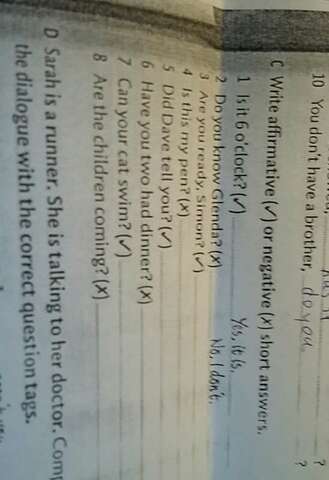 10 You don't have a brother, do you ?
?
C Write affirmative (✓) or negative (✗) short answers.
1 Is it 6 o'clock? (✓) Yes, it is.
2 Do you know Glenda? (✗) No, I don't.
3 Are you ready, Simon? (✓)
4 Is this my pen? (✗)
5 Did Dave tell you? (✓)
6 Have you two had dinner? (✗)
7 Can your cat swim? (✓)
8 Are the children coming? (✗)
D Sarah is a runner. She is talking to her doctor. Comp
the dialogue with the correct question tags.